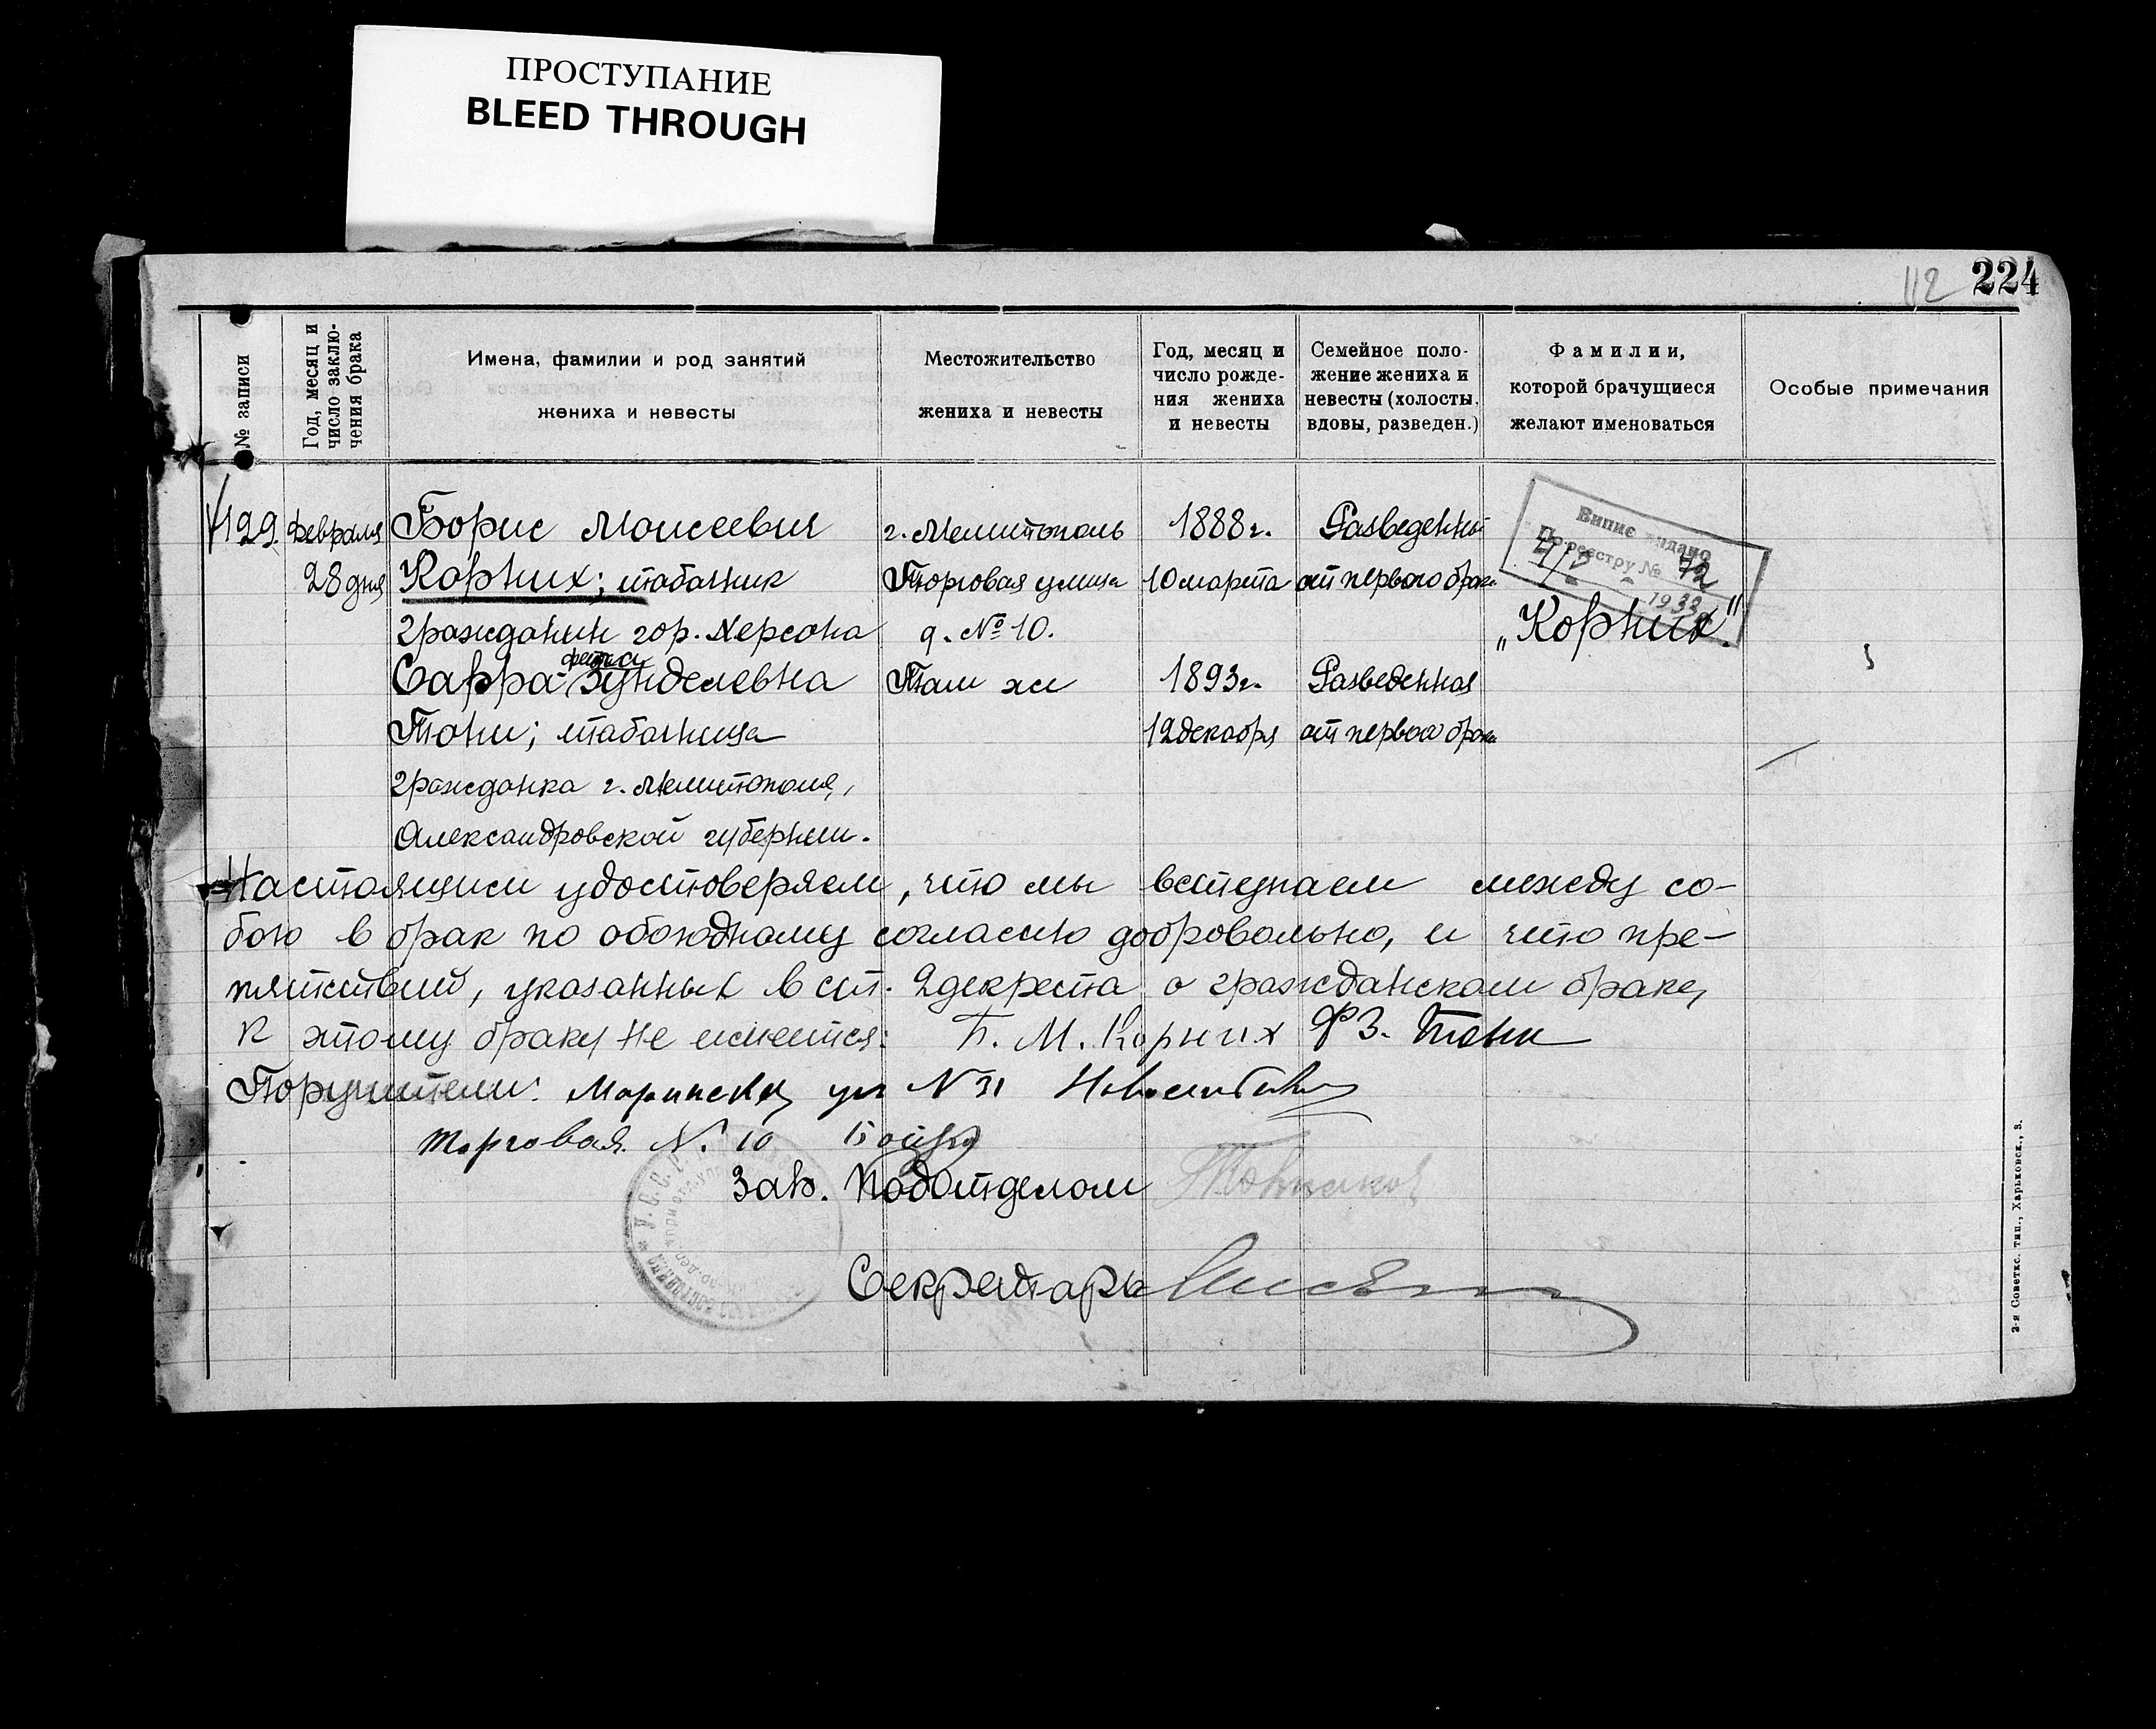 ПРОСТУПАНИЕ
BLEED THROUGH
112 224
№ записи
Год, месяц и
число заклю-
чения брака
Имена, фамилии и род занятий
жениха и невесты
Местожительство
жениха и невесты
Год, месяц и
число рожде-
ния жениха
и невесты
Семейное поло-
жение жениха и
невесты (холосты,
вдовы, разведен.)
Фамилии,
которой брачущиеся
желают именоваться
Особые примечания
129. февраля Борис Моисеевич г. Мелитополь 1888 г. Разведенный
28 дня Корних; табачник Торговая улица 10 марта от первого брака
Випис видано
По реестру № 72
1933
гражданин гор. Херсона д. № 10. „Корних"
Сарра-фейга Зунделевна Там же 1893 г. Разведенная
Тони; табачница 12 декабря от первого брака
гражданка г. Мелитополя,
Александровской губернии.
Настоящим удостоверяем, что мы вступаем между со-
бою в брак по обоюдному согласию добровольно, и что пре-
пятствий, указанных в ст. 2 декрета о гражданском браке,
к этому браку не имеется: Б. М. Корних Ф З. Тони
Поручители: ул N 31
Торговая N. 10
Зав. Подотделом
Секретарь
2-я Советск. тип., Харьковск., 3.